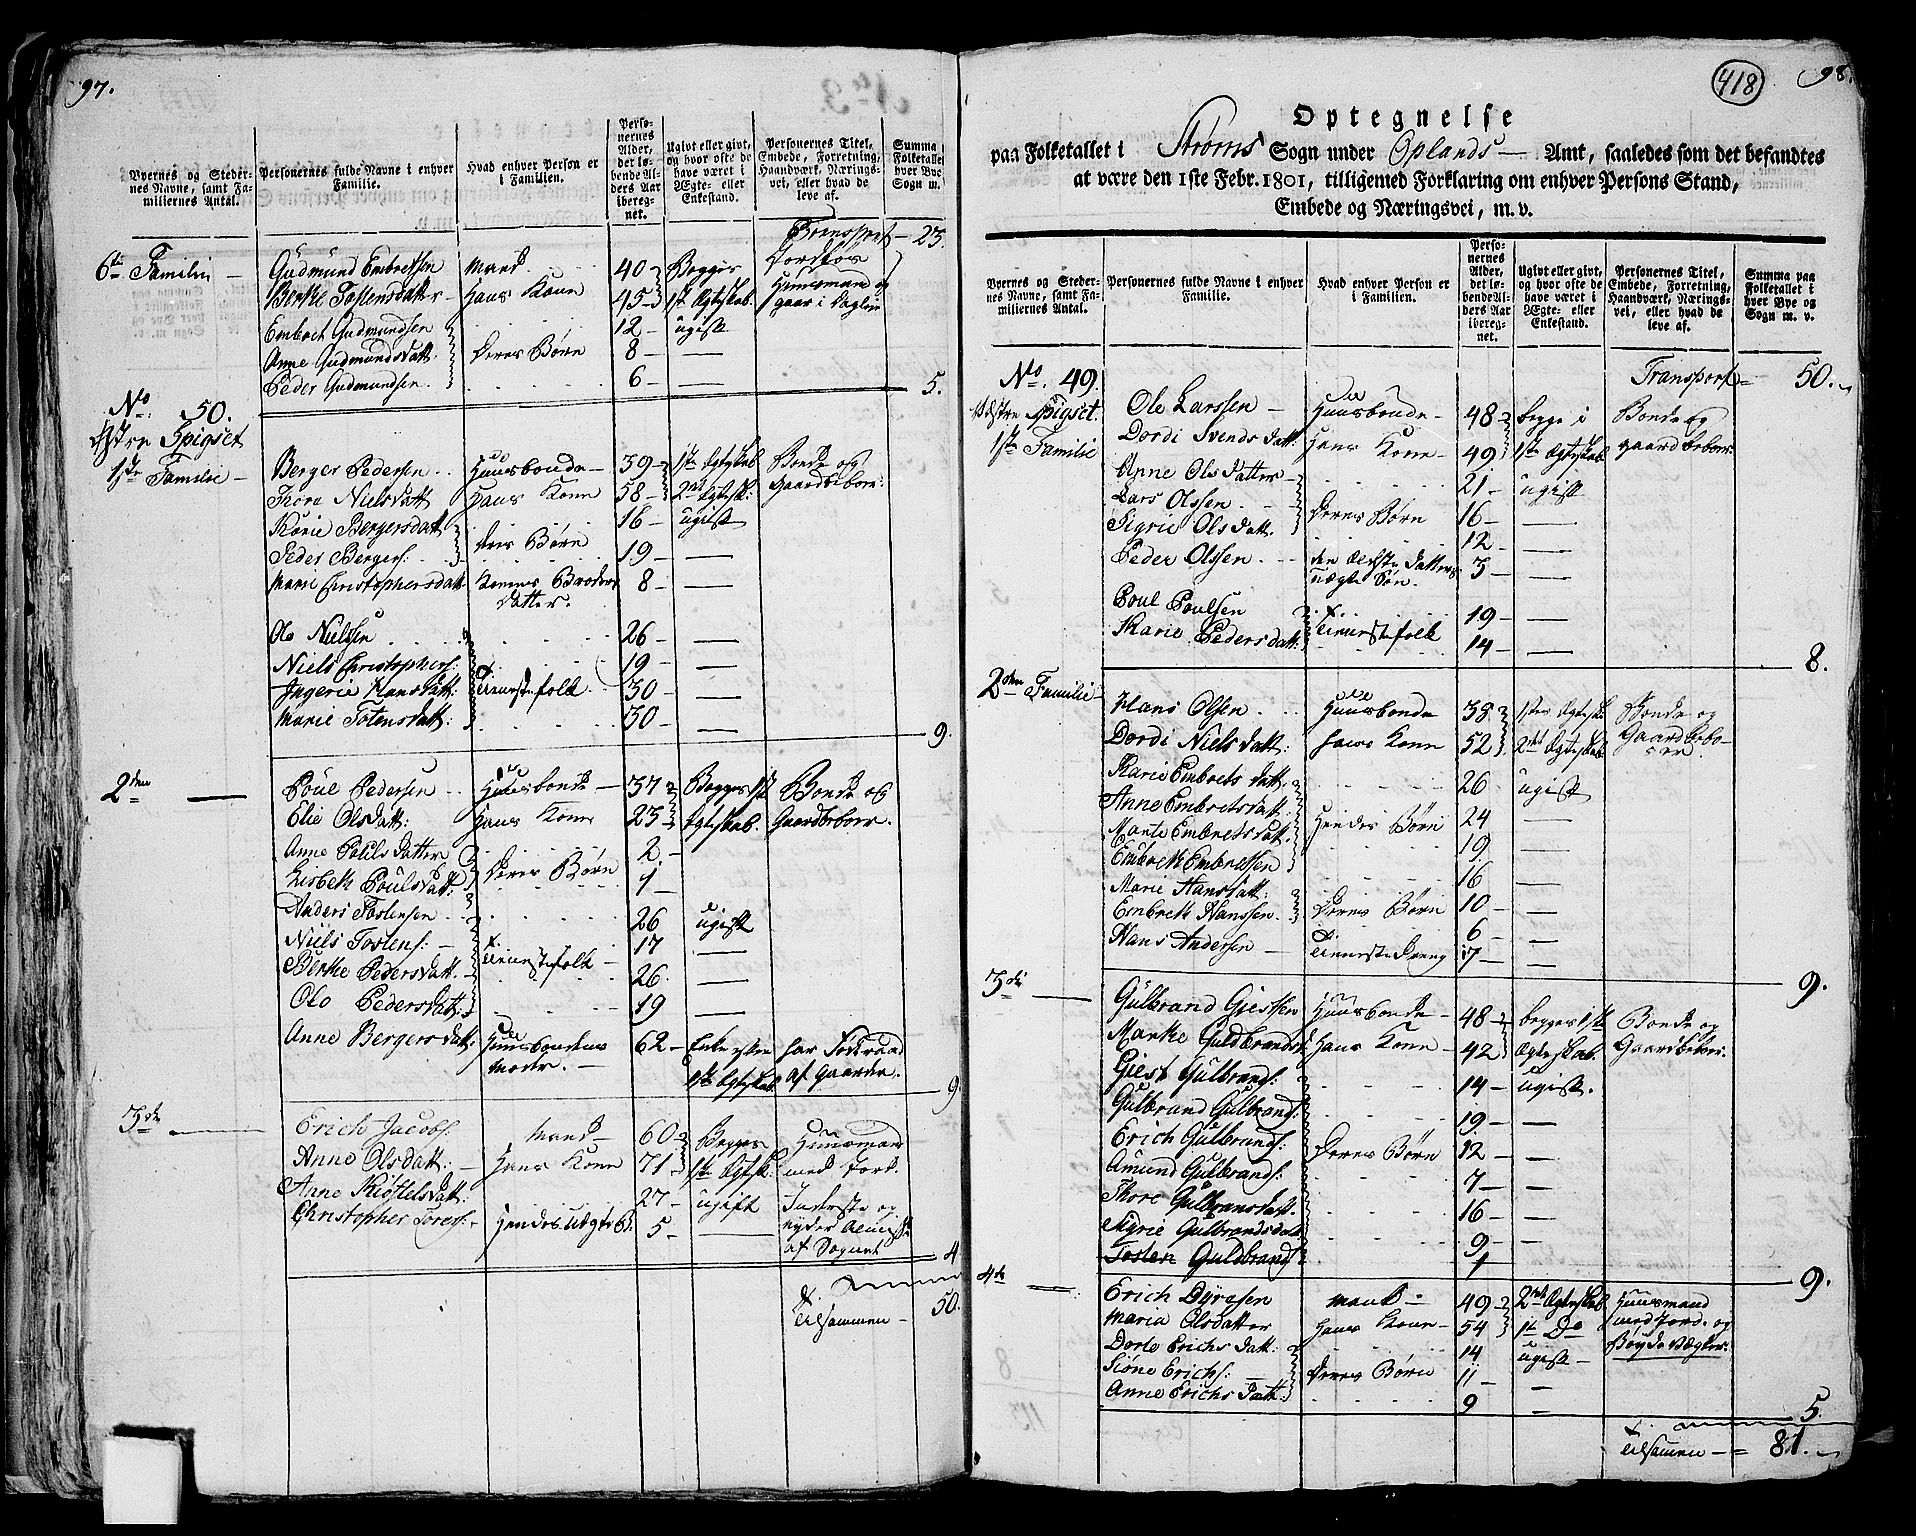 97.
Byernes og Stedernes Navne, samt Familiernes Antal.
Personernes fulde Navne i enhver Familie.
Hvad enhver Person er i Familien.
Personernes Alder, det løbende Alders Aar iberegnet.
Ugivt eller givt, og hvor ofte de have været i Ægte- eller Enkestand.
Personernes Titel, Embede, Forretning, Haandværk, Næringsvei, eller hvad de leve af.
Summa Folketallet hver Bye Sogn m.
Transport – 23.
6te Familie – Gudmund Embretsen Mand 40 Begges
Berthe Tostensdatter Hans Kone 45 1ste Ægteskab.
Embret Gudmundsen 12 – ugift
Anne Gudmundsdatt. Deres Børn 8 –
Peder Gudmundsen. 6 – 5.
No. 50.
Østre Spigset
1ste Familie – Berger Pedersen Huusbonde – 39 – 1ste Ægteskab Bonde og
Thore Nielsdatt Hans Kone 58 – 2det Ægtesk: Gaardbeboer.
Karie Bergersdatt 16 – ugift
Peder Bergers: Deres Børn 19 –
Marie Christophersdatt Konens Broders Datter. 8 –
Ole Nielsen 26 –
Niels Christophers: 19 –
Ingerie Hansdatt: Tienestefolk 30 –
Marie Tostensdatt: 30 – 9.
2den Poul Pedersen Huusbonde – 37 Begges 1ste Bonde og
Elie Olsdatt: Hans Kone 23 Ægteskab. Gaardbeboer.
Anne Pouls datter 2 –
Lisbeth Poulsdatt: Deres Børn 1
Anders Tostensen 26 ugift
Niels Tostens: – Tienestefolk – 17 –
Berthe Pedersdatt. 26 –
Ole Pedersdatt: 19 –
Anne Bergersdatt: Huusbondens Moder. – 62 – Enke efter 1ste Ægteskab har Føderaad af Gaarden. 9
3de Erich Jacobs: Mand 60 Begges Huusmand
Anne Olsdatt: – Hans Kone 71 1ste Ægtesk. med Jord.
Anne Kiøstelsdatt: 27 – ugift Inderste og
Christopher Tores: – Hendes uægte B. 5 – nyder Almisse af Sognet 4
Tilsammen – 50.
418
98.
Optegnelse
paa Folketallet i Strøms Sogn under Oplands – Amt, saaledes som det befandtes
at være den 1ste Febr. 1801, tilligemed Forklaring om enhver Persons Stand,
Embede og Næringsvei, m. v.
Byernes og Stedernes Navne, samt Familiernes Antal.
Personernes fulde Navne i enhver Familie.
Hvad enhver Person er i Familien.
Personernes Alder, det løbende Alders Aar iberegnet.
Ugivt eller givt, og hvor ofte de have været i Ægte- eller Enkestand.
Personernes Titel, Embede, Forretning, Haandværk, Næringsvei, eller hvad de leve af.
Summa paa Folketallet i hver Bye og Sogn m. v.
Transport = 50.
No. 49.
Vestre Spigset.
1ste Familie Ole Larssen – Huusbonde – 48 begge i Bonde og
Dordi Svends datt: Hans Kone – 49 1ste Ægteskab gaardbeboer
Anne Ols datter – 21 – ugift
Lars Olssen Deres Børn 16 –
Sigrie Ols datt. 12 –
Peder Olssen den ældste datters uægte Søn. 3 –
Poul Poulsen Tienestefolk 19 –
Karie Pedersdatt: 14 – 8.
2den Familie – Hans Olsen Huusbonde 38 1ste Ægteskab Bonde og
Dordi Nielsdatt: hans Kone 52 2det Ægteskab Gaardbeboer.
Karie Embrets datt: 26 ugift
Anne Embretsdatt: 24 –
Marte Embretsdatt: Hendes Børn 19 –
Embret Embretsen 16 –
Marie Hansdatt: 10 –
Embret Hanssen Deres Børn 6 –
Hans Andersen – Tieneste Dreng 17 – 9.
3die Gulbrand Giestsen Huusbonde – 48 – begges 1ste Bonde og
Marthe Guldbrandsd: Hans Kone – 42 Ægteskab. Gaardbeboer.
Giest Gulbrands: 14 – ugift.
Gulbrand Gulbrands: 19 –
Erich Gulbrands: Deres Børn 12 –
Amund Gulbrands: 7 –
Thore Gulbransdatt. 16 –
Sigrie Gulbrandsdatt 9 –
Tosten Guldbrands 1 9.
4de Erich Dyresen Mand – 49 2det Ægteskab Huusmand
Maria Olsdatter Hans Kone – 54 1te Do med Jord og
Dorte Erichs datt: 14 ugift – Bøyde Vægter.
Siøne Erichs: – Deres Børn 11 –
Anne Erichs datt: 9 – 5.
Tilsamen – = 81.